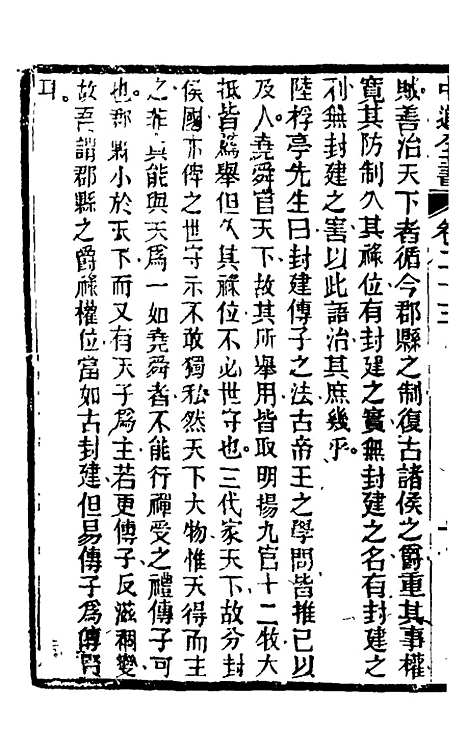 賊善治天下者循今郡縣之制復古諸侯之爵重其事權
寬其防制久其祿位有封建之實無封建之名有封建之
利無封建之害以此語治其庶幾乎。
陸桴亭先生曰封建傳子之法古帝王之學問皆推己以
及人堯舜官天下故其所舉用皆取明揚九官十二牧大
抵皆薦舉但久其祿位不必世守也。三代家天下故分封
侯國亦俾之世守示不敢獨私然天下大物惟天得而主
之非真能與天為一如堯舜者不能行禪受之禮傳子可
也郡縣小於天下而又有天子為主若更傳子反滋禍變
故吾謂郡縣之爵祿權位當如古封建但易傳子為傳賢
耳。
卷二十三